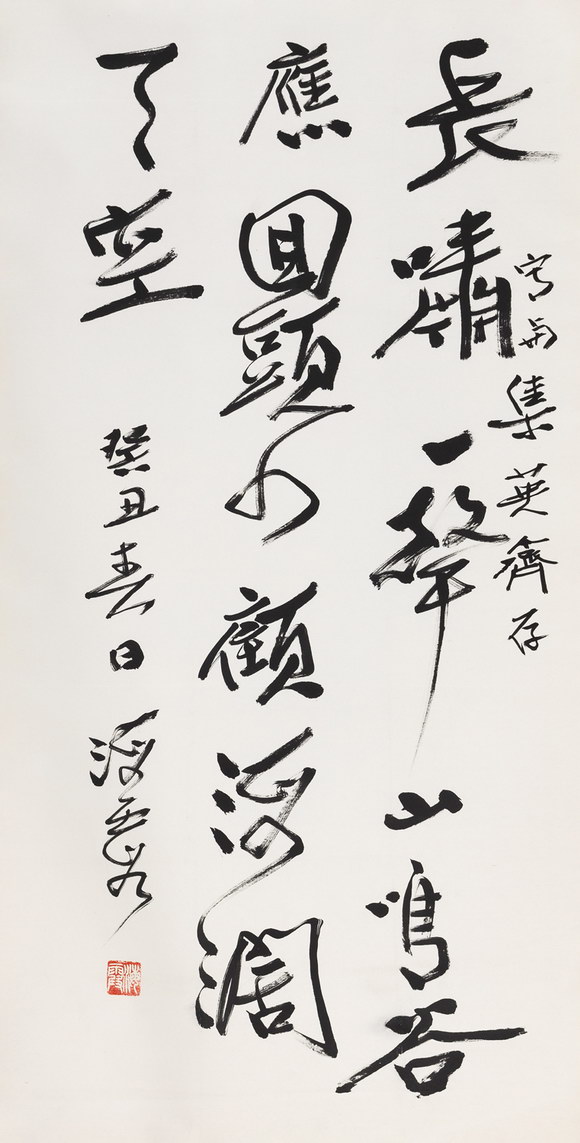 長嘯一聲山鳴谷
應回頭四顧海闊
天空
癸丑春日 海霞
写与集英齋存